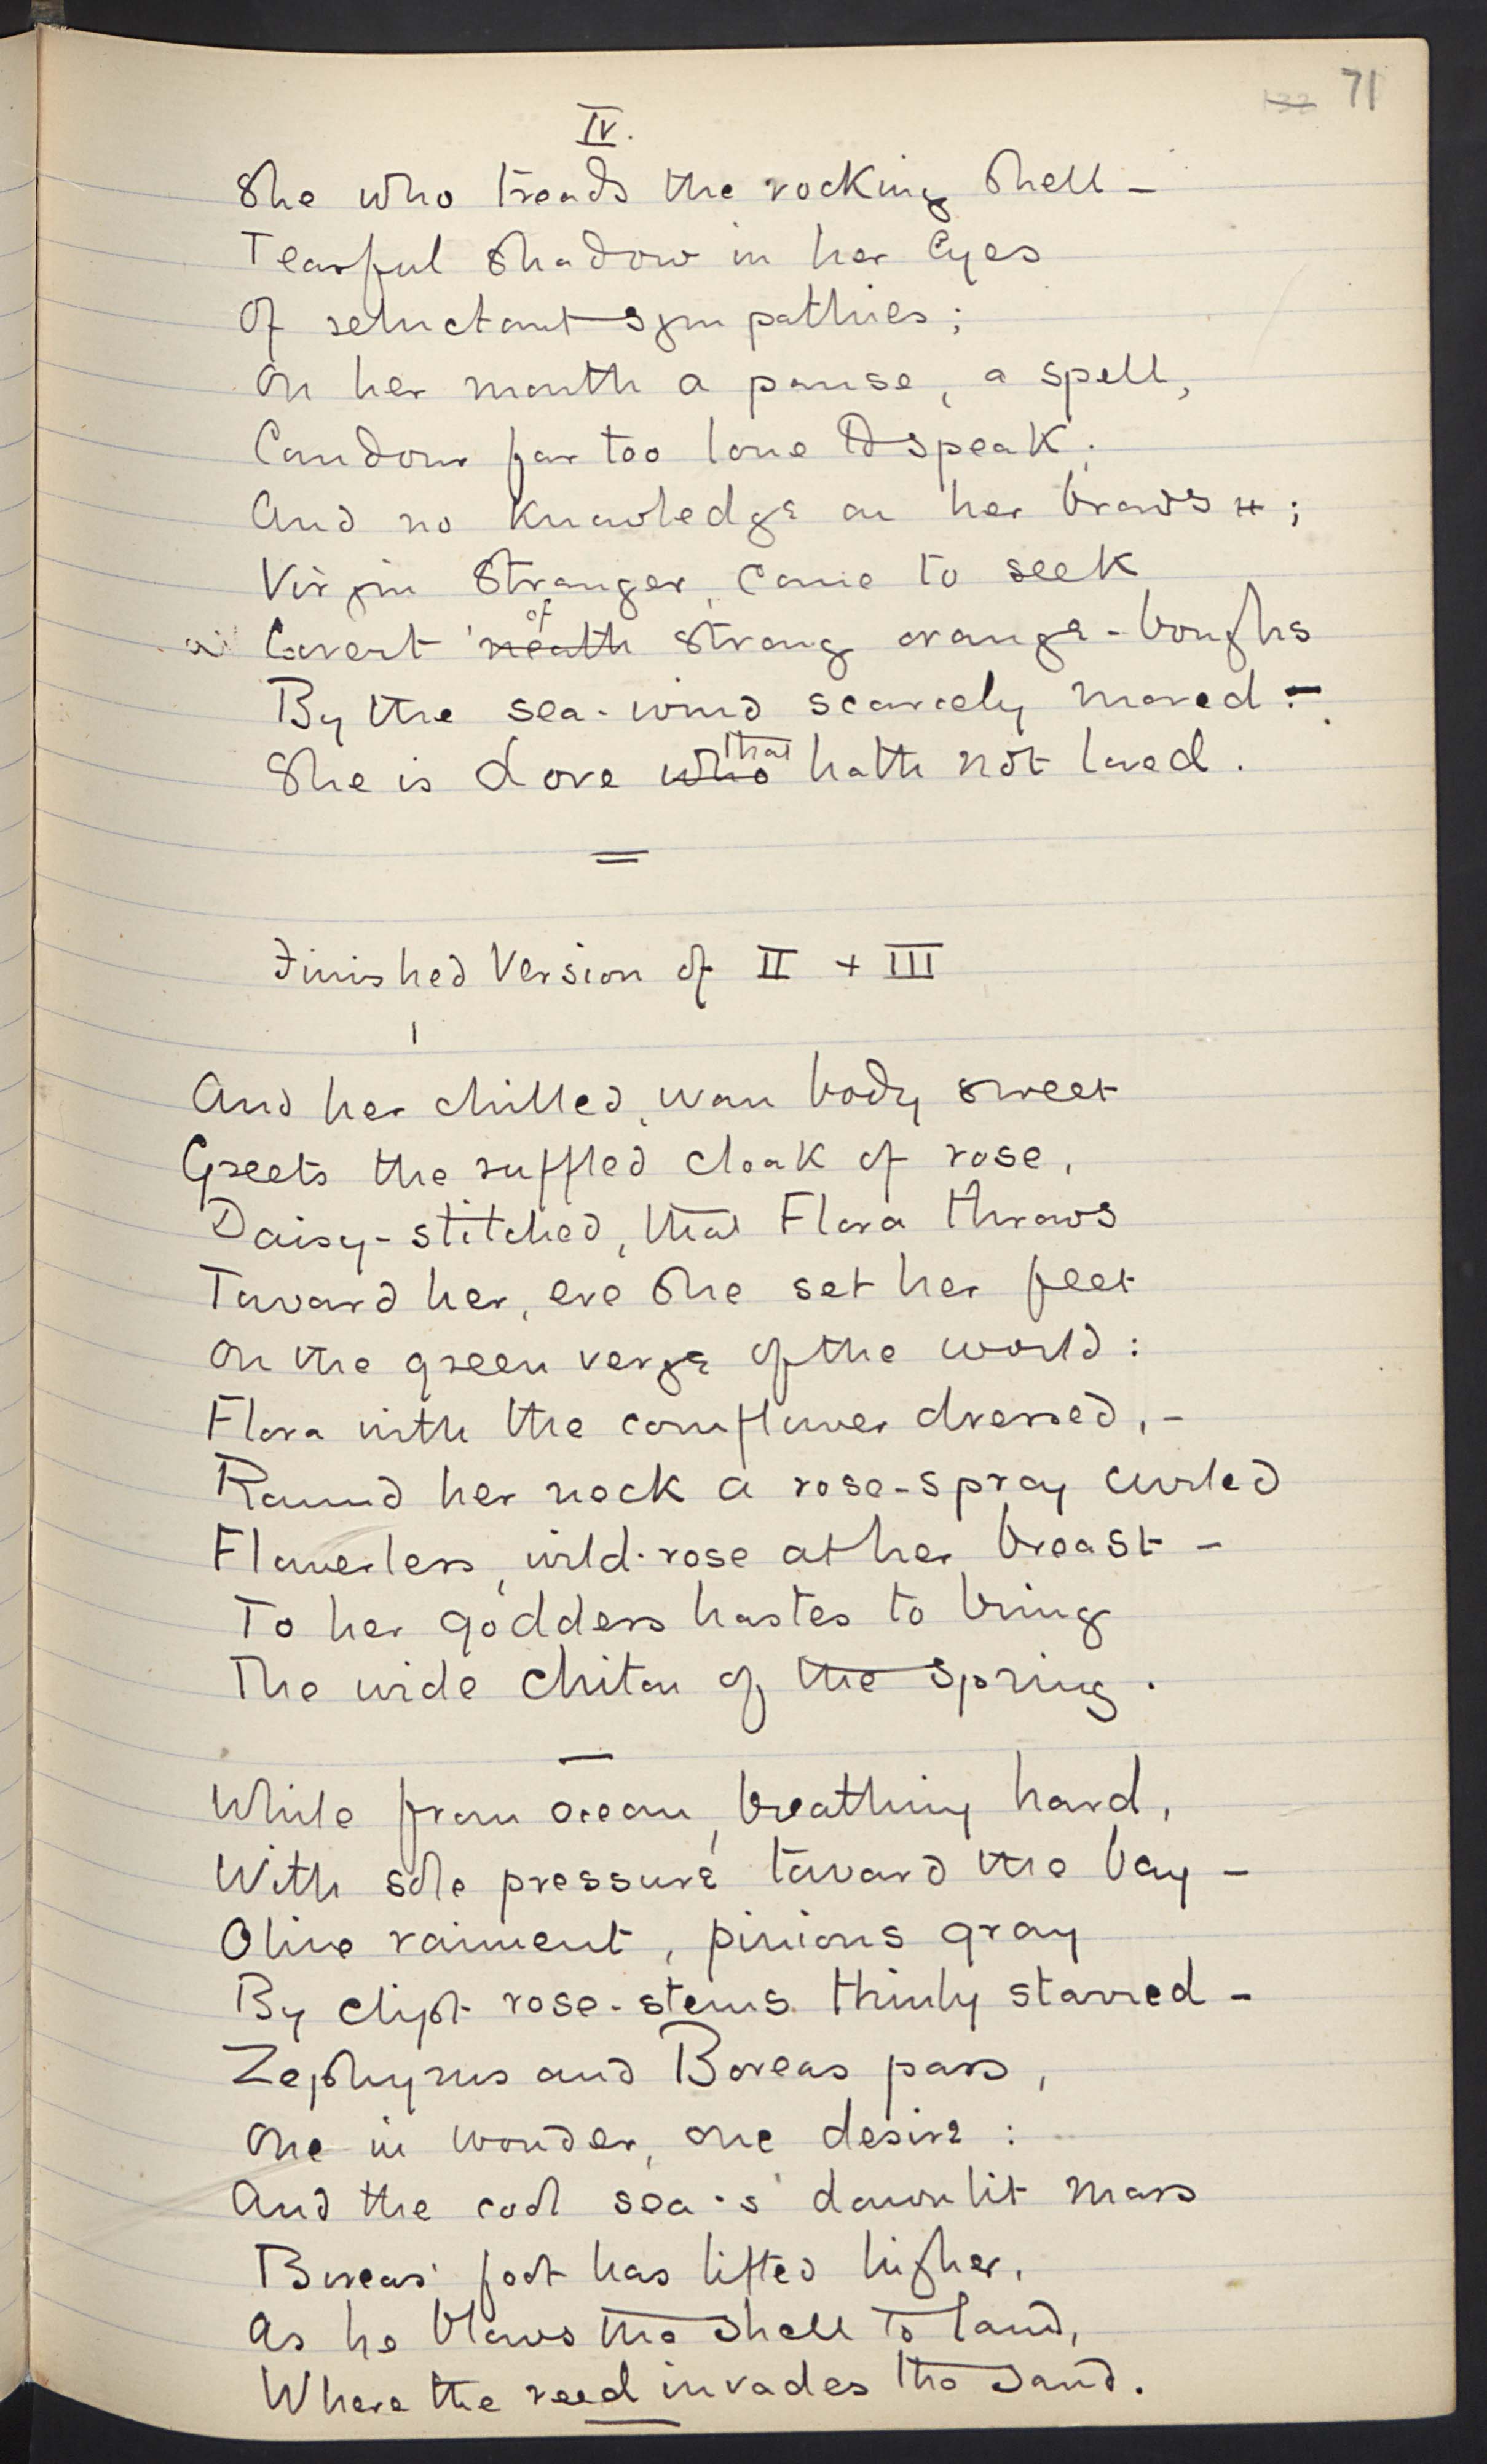 71
IV.
She who treads the rocking shell –
Tearful shadow in her Eyes
Of reluctant sympathies;
On her mouth a pause, a spell,
Candour far too lone to speak;
And no knowledge on her brows;
Virgin Stranger, come to seek
Covert of neath strong orange-boughs
By the sea-wind scarcely moved –.
She is Love who that hath not loved.
Finished Version of II + III
1
And her chilled, wan body sweet
Greets the ruffled cloak of rose,
Daisy-stitched, that Flora throws
Toward her, ere she set her feet
On the green verge of the world:
Flora with the cornflower dressed, –
Round her neck a rose-spray curled
Flowerless, wild-rose at her breast –
To her goddess hastes to bring
The wide chiton of the spring.
While from ocean, breathing hard,
With sole pressure toward the bay –
Olive raiment, pinions gray
By clipt rose-stems thinly starred –
Zephyrus and Boreas pass,
One in wonder, one desire:
And the cool sea's dawnlit mass
Boreas' foot has lifted higher,
As he blows the shell to land,
Where the reed invades the sand.